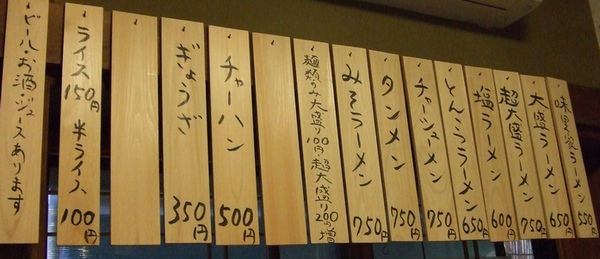 ラーメン 550円
大盛ラーメン 650円
超大盛ラーメン 750円
塩ラーメン 600円
とんこつラーメン 650円
チャーシューメン 750円
タンメン 750円
みそラーメン 750円
麺類のみ大盛り100円・超大盛り200円増
チャーハン 500円
ぎょうざ 350円
ライス150円 半ライス 100円
ビール・お酒・ジュースあります